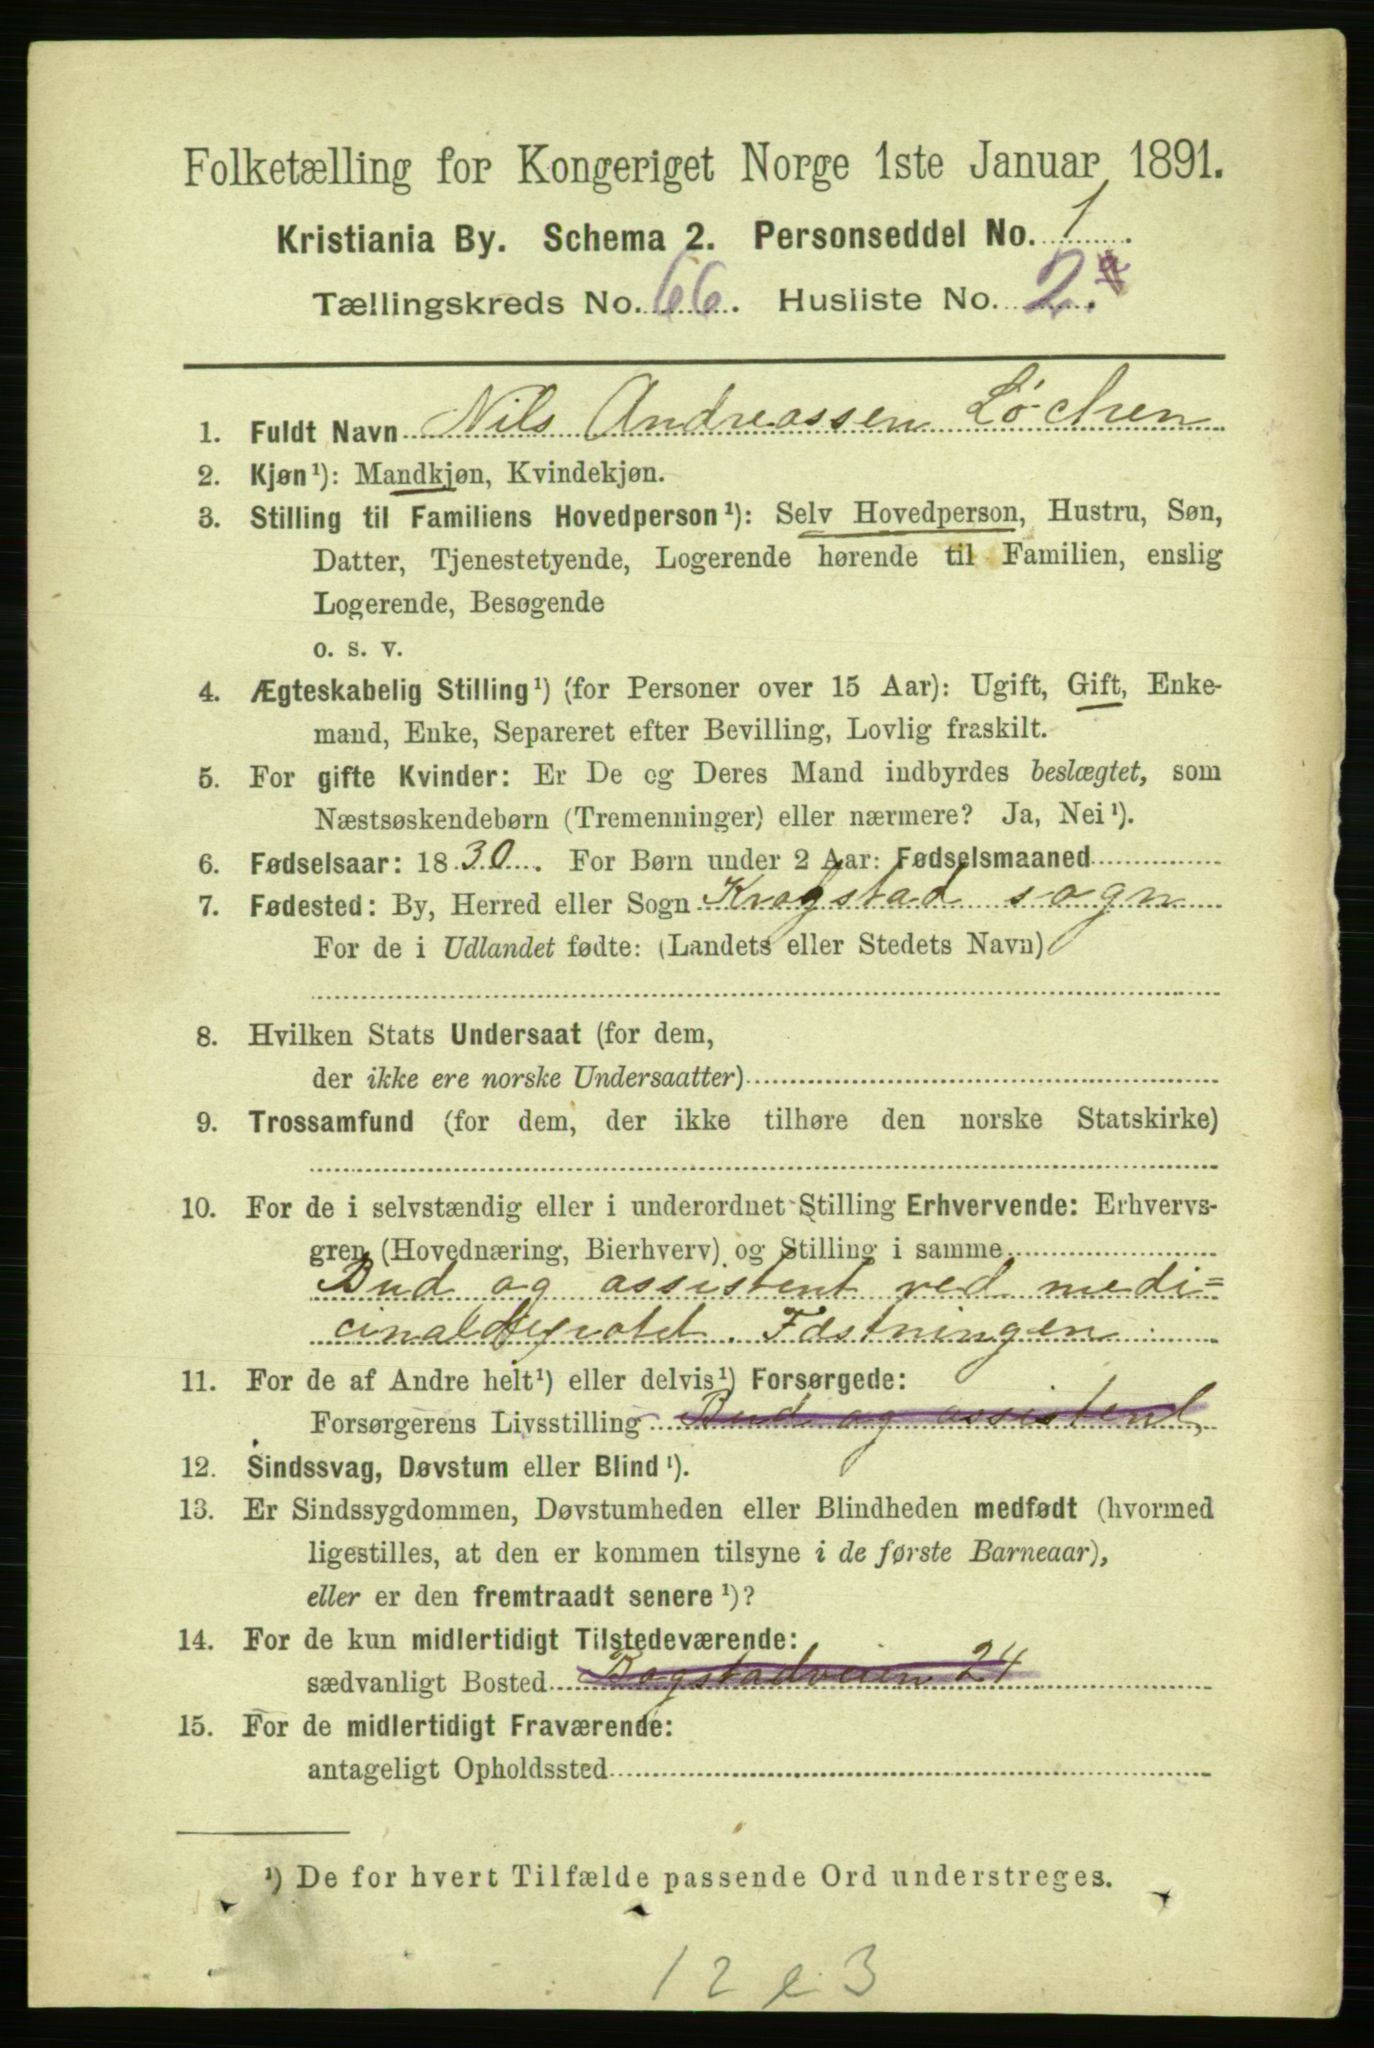 Folketælling for Kongeriget Norge 1ste Januar 1891.
Kristiania By. Schema 2. Personseddel No. 1
Tællingskreds No. 66. Husliste No. 2.a
1. Fuldt Navn Nils Andreassen Løchen
2. Kjøn¹): Mandkjøn, Kvindekjøn.
3. Stilling til Familiens Hovedperson¹): Selv Hovedperson, Hustru, Søn,
Datter, Tjenestetyende, Logerende hørende til Familien, enslig
Logerende, Besøgende
o. s. v.
4. Ægteskabelig Stilling¹) (for Personer over 15 Aar): Ugift, Gift, Enke-
mand, Enke, Separeret efter Bevilling, Lovlig fraskilt.
5. For gifte Kvinder: Er De og Deres Mand indbyrdes beslægtet, som
Næstsøskendebørn (Tremenninger) eller nærmere? Ja, Nei¹).
6. Fødselsaar: 1830. For Børn under 2 Aar: Fødselsmaaned
7. Fødested: By, Herred eller Sogn Krogstad sogn
For de i Udlandet fødte: (Landets eller Stedets Navn)
8. Hvilken Stats Undersaat (for dem,
der ikke ere norske Undersaatter)
9. Trossamfund (for dem, der ikke tilhøre den norske Statskirke)
10. For de i selvstændig eller i underordnet Stilling Erhvervende: Erhvervs-
gren (Hovednæring, Bierhverv) og Stilling i samme
Bud og assistent ved medi=
Fæstningen
11. For de af Andre helt¹) eller delvis¹) Forsørgede:
Forsørgerens Livsstilling Bud og assistent,
12. Sindssvag, Døvstum eller Blind¹).
13. Er Sindssygdommen, Døvstumheden eller Blindheden medfødt (hvormed
ligestilles, at den er kommen tilsyne i de første Barneaar),
eller er den fremtraadt senere¹)?
14. For de kun midlertidigt Tilstedeværende:
sædvanligt Bosted Bogstadveien 24
15. For de midlertidigt Fraværende:
antageligt Opholdssted
¹) De for hvert Tilfælde passende Ord understreges.
12 e 3